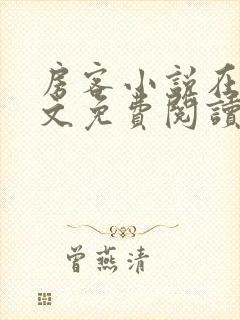 房客小說在
文免費閱讀
曾燕清